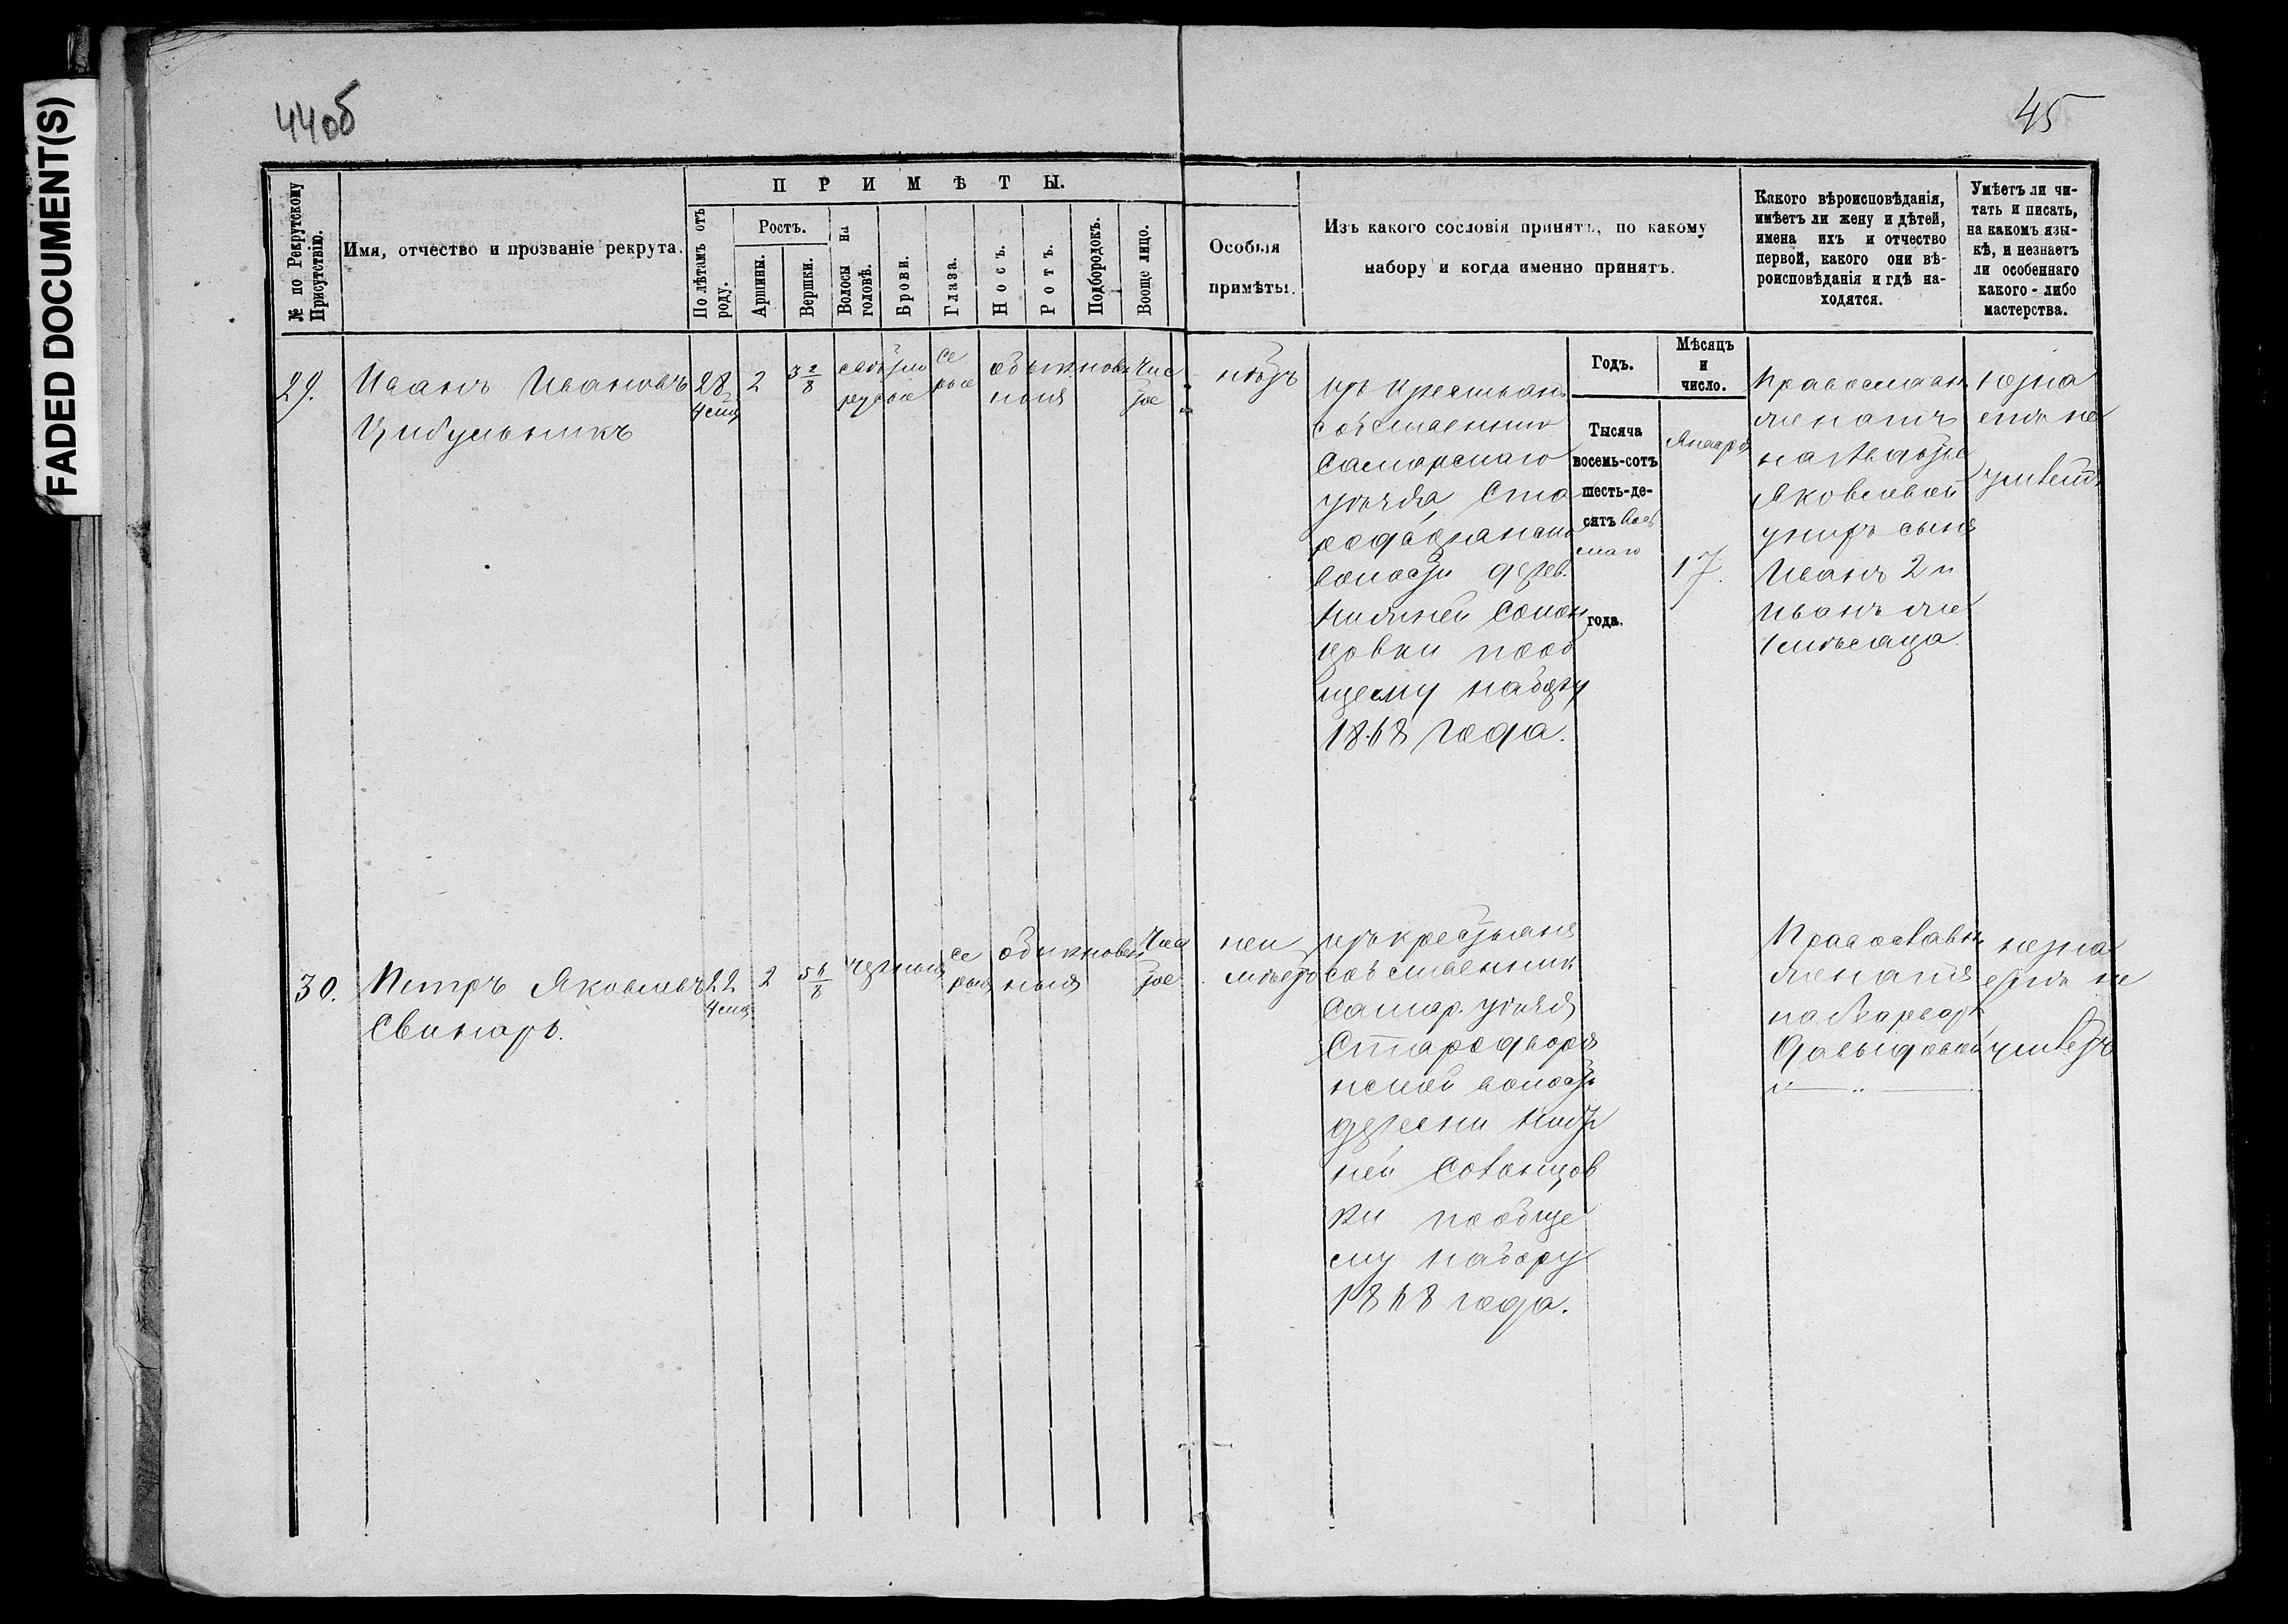 FADED DOCUMENT(S)
44об
45
№ по Рекрутскому Присутствію.
Имя, отчество и прозваніе рекрута.
ПРИМѢТЫ.
По лѣтамъ отъ роду.
Ростъ.
Аршины.
Вершки.
Волосы на головѣ.
Брови.
Глаза.
Носъ.
Ротъ.
Подбородокъ.
Вооще лицо.
Особыя
примѣты.
Изъ какого сословія принятъ, по какому
набору и когда именно принятъ.
Какого вѣроисповѣданія,
имѣетъ ли жену и дѣтей,
имена ихъ и отчество
первой, какого они вѣ-
роисповѣданія и гдѣ на-
ходятся.
Умѣетъ ли чи-
тать и писать,
на какомъ язы-
кѣ, и незнаетъ
ли особеннаго
какого-либо
мастерства.
Годъ.
Мѣсяцъ
и
число.
29.
Иванъ Ивановъ
Цибульникъ
28
4 мц
2
3 2/8
свѣтло
русые
се
рые
обыкнове
нныя
Чис
тое
нѣтъ
изъ крестьянъ
собственник
Самарскаго
уѣзда Ста
родворянской
волости дерев.
Нижней Солон
цовки пооб
щему набору
1868 года.
Тысяча
восемь-сотъ
шесть-де-
сятъ вось
маго
года.
Января
17.
Православн
женатъ
на
Яковлевой
у нихъ сынъ
Иванъ 2 и
Иванъ же
1 мѣсяца
незна
етъ не
умѣетъ
30.
Петръ Яковлевъ
Свинарь.
22
4 мц
2
5 6/8
черныя
се
рыя
обыкновен
ныя
Чис
тое
неи
мѣетъ
изъ крестьянъ
собственник
Самар. уѣзда
Стародворя
нской волости
деревни Ниж
ней Солонцов
ки пообще
му набору
1868 года.
Православн
женатъ
на Варвар
Давыдовой
незна
етъ не
умѣетъ